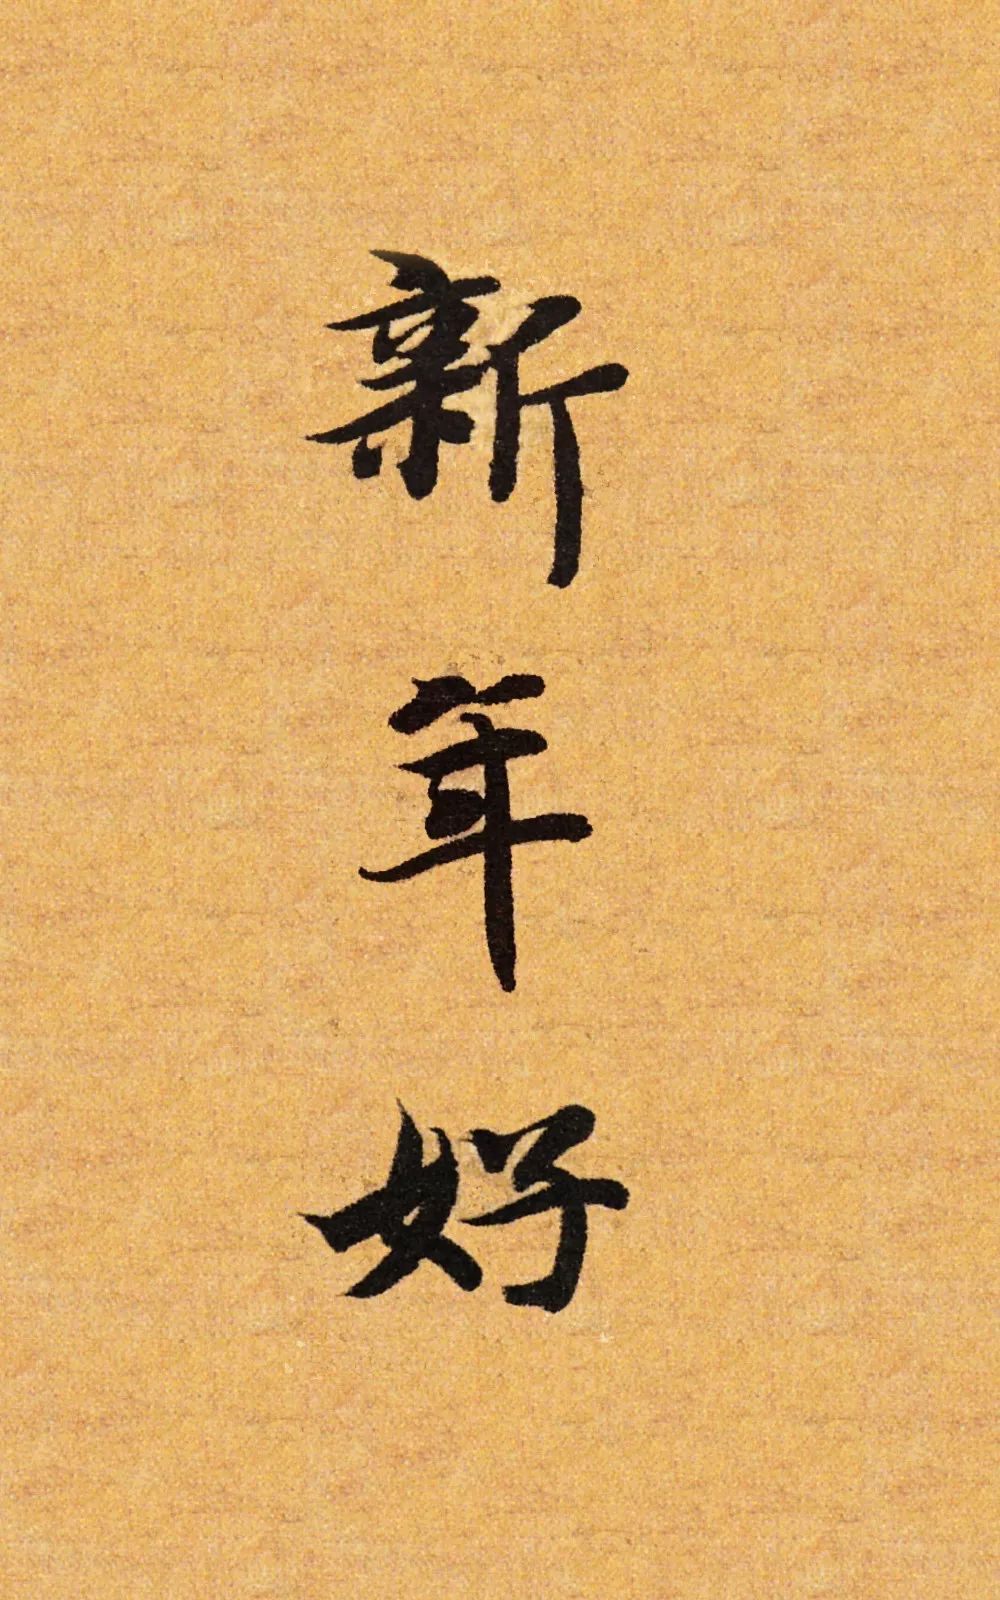 新年好